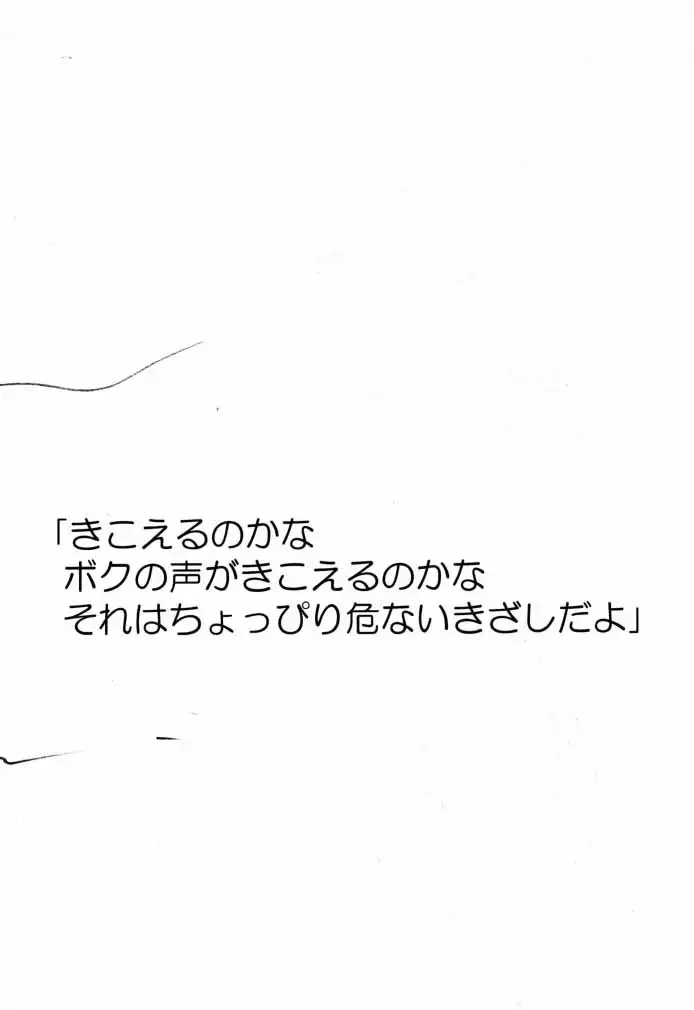 「きこえるのかな
ボクの声がきこえるのかな
それはちょっぴり危ないきざしだよ」